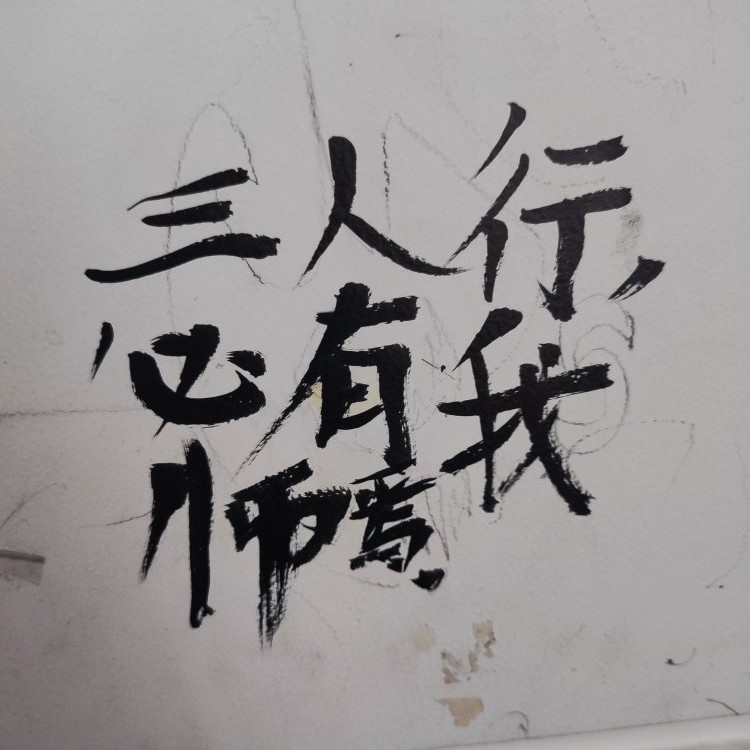 三人行,
必有我
师焉.